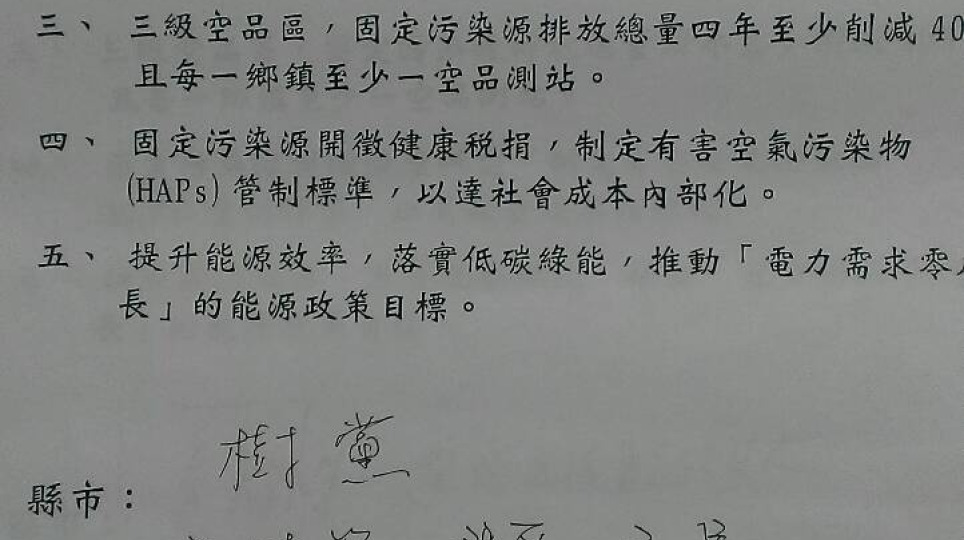 三、 三級空品區，固定污染源排放總量四年至少削減 40
且每一鄉鎮至少一空品測站。
四、 固定污染源開徵健康稅捐，制定有害空氣污染物
(HAPs) 管制標準，以達社會成本內部化。
五、 提升能源效率，落實低碳綠能，推動「電力需求零
長」的能源政策目標。
樹黨
縣市：